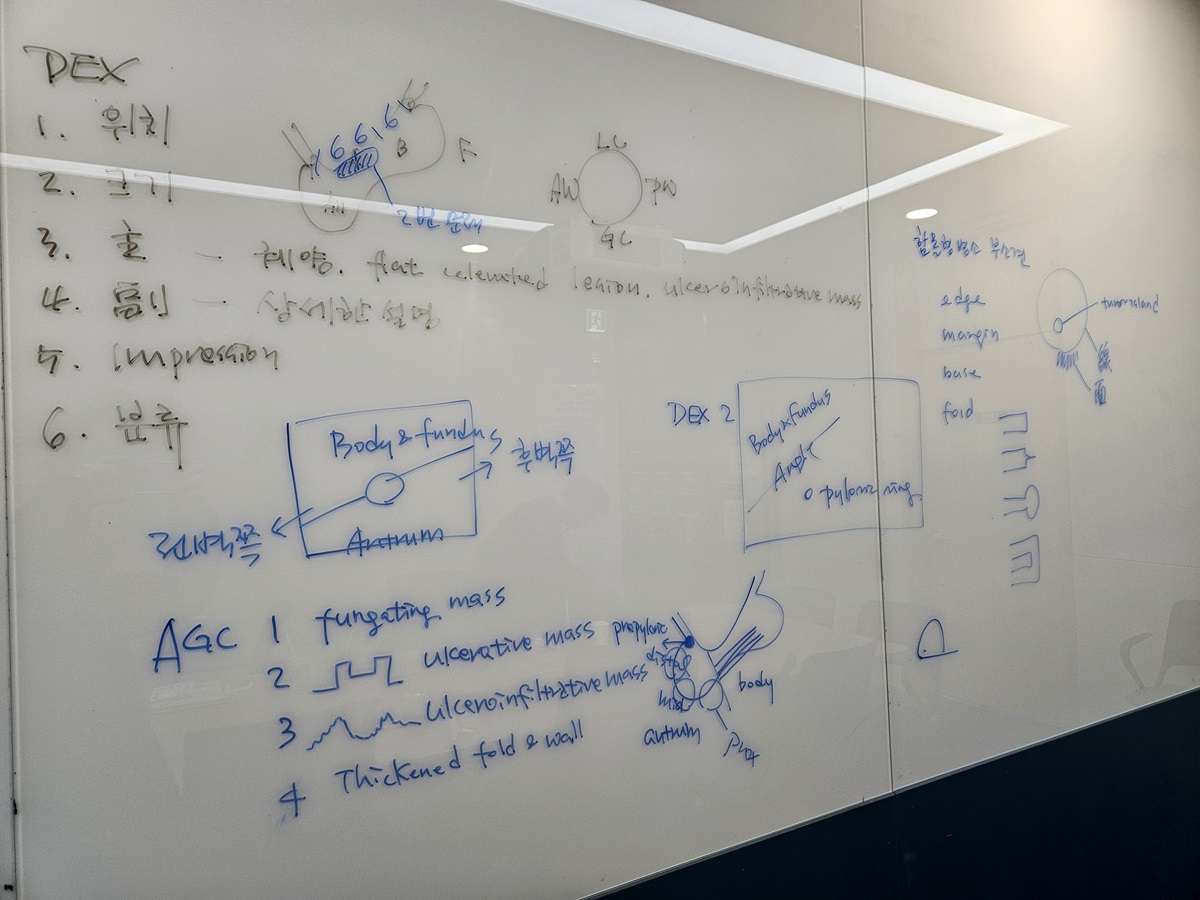 DEX
1. 위치
2. 크기
3. 호 - 궤양. flat elevated lesion. ulceroinfiltrative mass
4. 흠 - 상세한 설명
5. Impression
6. 분류
6 6 6
B
F
2번 문제
LC
AW PW
GC
Body & fundus
Antrum
후벽쪽
전벽쪽
DEX 2
Body & fundus
Angle
pyloric ring
함몰형병소 부소견
edge
margin
base
fold
tumor island
線
面
AGC 1 fungating mass
2 ulcerative mass
3 ulceroinfiltrative mass
4 Thickened fold & wall
prepyloric
distal
mid
antrum
body